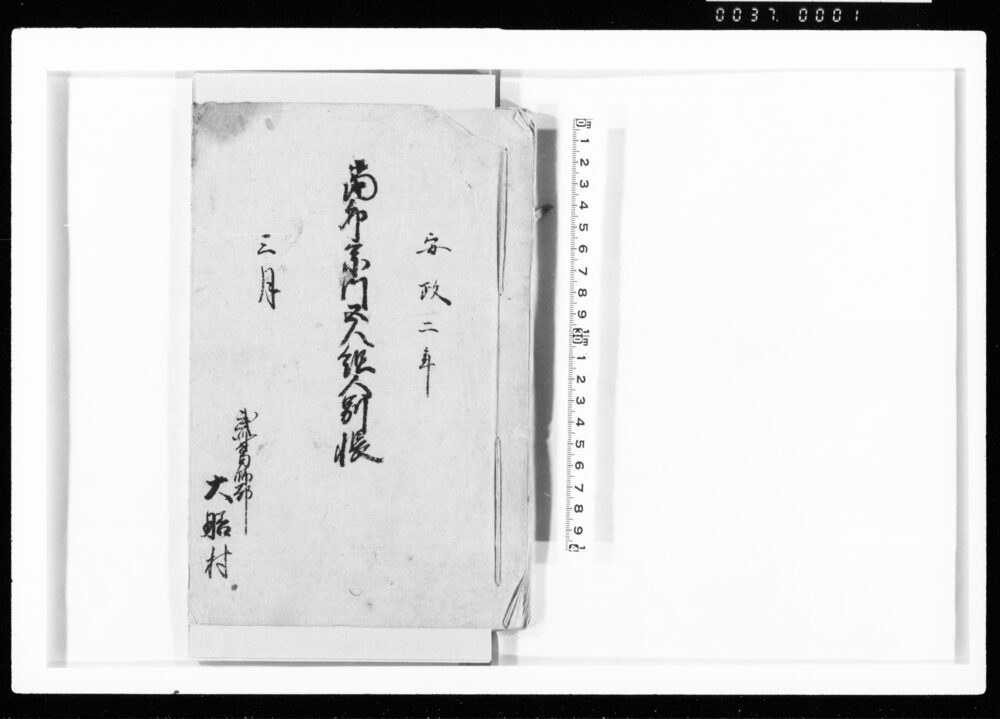 0037. 0001
安政二年
當卯宗門五人組人別帳
三月
武州葛飾郡
大膳村
1 2 3 4 5 6 7 8 9 10 1 2 3 4 5 6 7 8 9